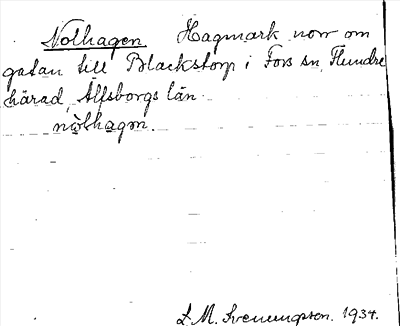 Nolhagen Hagmark norr om
gatan till Blackstorp i Fors sn, Flundre
härad, Älfsborgs län.
nòlhagən.
L. M. Svenungsson. 1934.